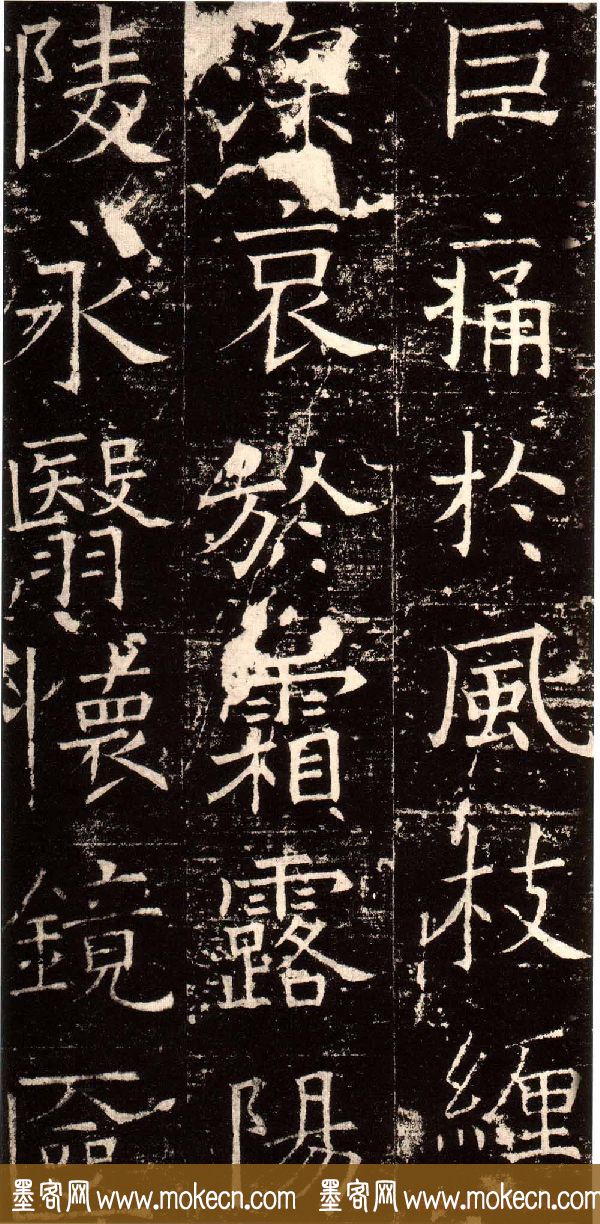 巨痛於風枝纏
深哀於霜露陽
陵永翳懷鏡匳
墨客网 www.mokecn.com 墨客网 www.mokecn.com